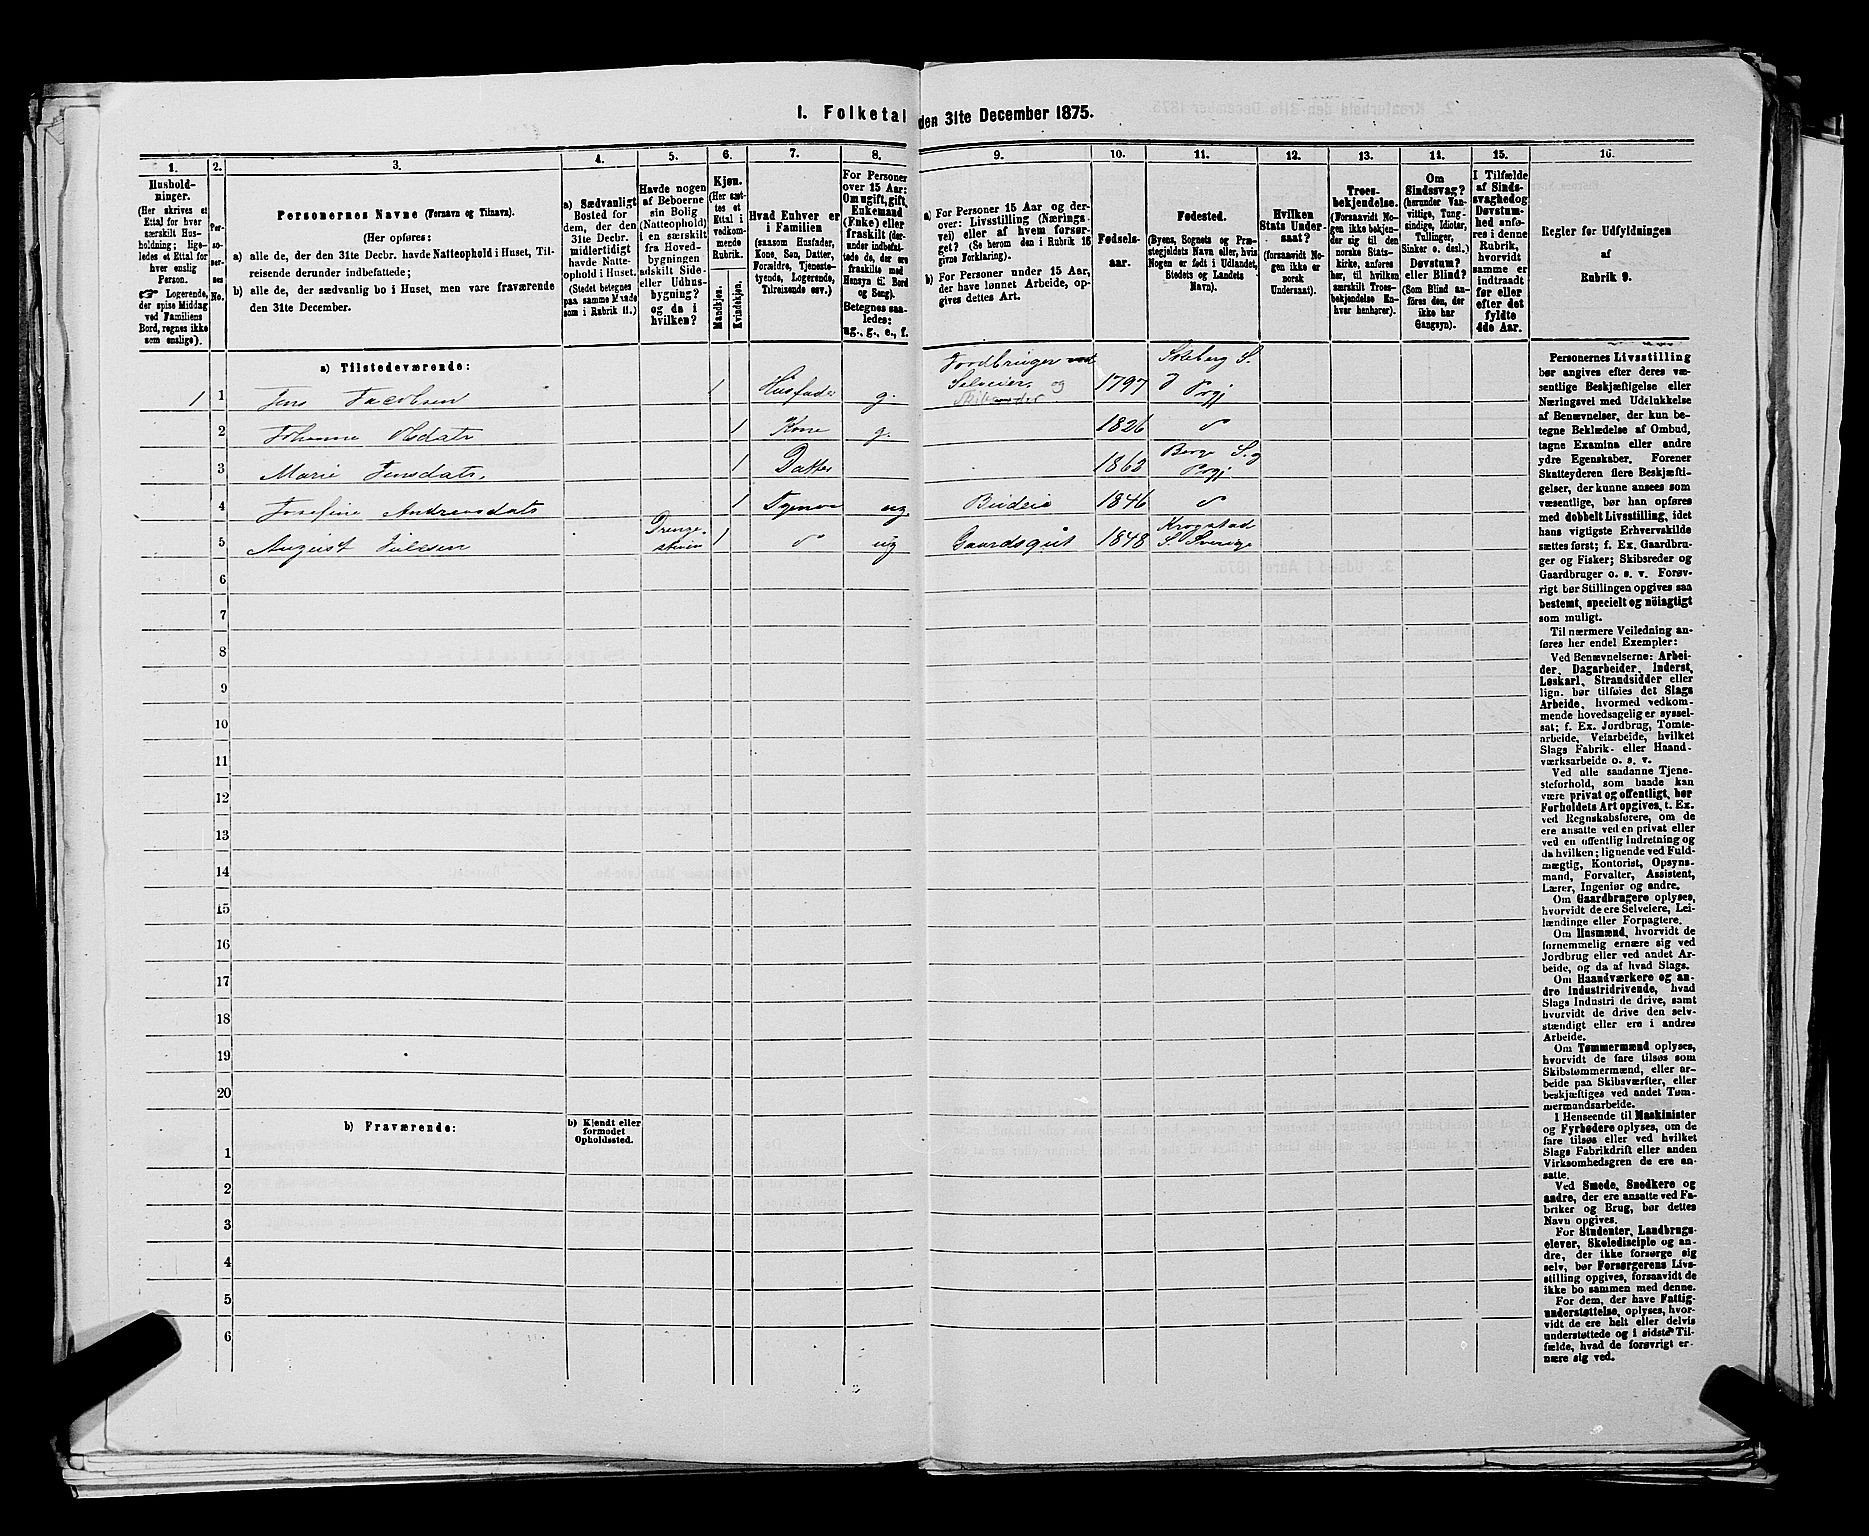 I. Folketal den 31te December 1875.
1. 2. 3. 4. 5. 6. 7. 8. 9. 10. 11. 12. 13. 14. 15. 16.
Husholdninger.
(Her skrives et
Ettal for hver
særskilt Husholdning;
ligeledes et Ettal for
hver enslig
Person.
☞ Logerende,
der spise Middag
ved Familiens
Bord, regnes ikke
som enslige).
Personernes No.
Personernes Navne (Fornavn og Tilnavn).
(Her opføres:
a) alle de, der den 31te Decbr. havde Natteophold i Huset, Tilreisende derunder indbefattede;
b) alle de, der sædvanlig bo i Huset, men vare fraværende
den 31te December.
a) Sædvanligt
Bosted for
dem, der den
31te Decbr.
midlertidigt
havde Natteophold i Huset.
(Stedet betegnes
paa samme Maade
som i Rubrik 11.)
Havde nogen
af Beboerne
sin Bolig
(Natteophold)
i en særskilt
fra Hovedbygningen
adskilt Side-
eller Udhusbygning?
og da i
hvilken?
Kjøn.
(Her sættes et
Ettal i
vedkommende
Rubrik.
Mandkjøn.
Kvindekjøn.
Hvad Enhver er
i Familien
(saasom Husfader,
Kone, Søn, Datter,
Forældre, Tjenestetyende, Logerende,
Tilreisende osv.)
For Personer
over 15 Aar:
Om ugift, gift,
Enkemand
(Enke) eller
fraskilt (derunder indbefattede de, der ere
fraskilte med
Hensyn til Bord
og Seng).
Betegnes saaledes:
ug., g., e., f.
a) For Personer 15 Aar og derover: Livsstilling (Næringsvei) eller af hvem forsørget? (Se herom den i Rubrik 16
givne Forklaring).
b) For Personer under 15 Aar,
der have lønnet Arbeide, opgives dettes Art.
Fødselsaar.
Fødested.
(Byens, Sognets og Præstegjeldets Navn eller, hvis
Nogen er født i Udlandet,
Stedets og Landets
Navn).
Hvilken
Stats Undersaat?
(forsaavidt Nogen ikke er
norsk
Undersaat).
Troesbekjendelse.
(Forsaavidt Nogen ikke bekjender sig til den
norske Statskirke, anføres
her, til hvilken
særskilt Troesbekjendelse Enhver henhører).
Om
Sindssvag?
(herunder Vanvittige, Tungsindige, Idioter,
Tullinger,
Sinker o. desl.)
Døvstum?
eller Blind?
(Som Blind anføres den, der
ikke har
Gangsyn).
I Tilfælde
af Sindssvaghed og
Døvstumhed anføres i denne
Rubrik,
hvorvidt
samme er
indtraadt
før eller
efter det
fyldte
4de Aar.
Regler før Udfyldningen
af
Rubrik 9.
a) Tilstedeværende:
1 1 Jens Jacobsen 1 Husfader g. Jordbruger Selveier og Skibsreder 1797 Skieberg S. og Prgj
2 Johanne Olsdatr 1 Kone g. 1826 do
3 Marie Jensdatr. 1 Datter 1863 Berg S. og Prgj
4 Josefine Andreasdatr 1 Tjener ug Budeie 1846 do
5 August Julesen Drengestuen 1 do ug Gaardsgut 1848 Krogstad S. Sverige
6
7
8
9
10
11
12
13
14
15
16
17
18
19
20
b) Fraværende:
b) Kjendt eller
formodet
Opholdssted.
1
2
3
4
5
6
Personernes Livsstilling
bør angives efter deres væsentlige Beskjæftigelse eller
Næringsvei med Udelukkelse
af Benævnelser, der kun betegne Beklædelse af Ombud,
tagne Examina eller andre
ydre Egenskaber. Forener
Skatteyderen flere Beskjæftigelser, der kunne ansees som
væsentlige, bør han opføres
med dobbelt Livsstilling, idet
hans vigtigste Erhvervskilde
sættes først; f. Ex. Gaardbruger og Fisker; Skibsreder og
Gaardbruger o. s. v. Forøvrigt bør Stillingen opgives saa
bestemt, specielt og nöiagtigt
som muligt.
Til nærmere Veiledning anføres her endel Exempler:
Ved Benævnelserne: Arbeider, Dagarbeider, Inderst,
Løskarl, Strandsidder eller
lign. bør tilføies det Slags
Arbeide, hvormed vedkommende hovedsagelig er sysselsat; f. Ex. Jordbrug, Tomtearbeide, Veiarbeide, hvilket
Slags Fabrik- eller Haandværksarbeide o. s. v.
Ved alle saadanne Tjenesteforhold, som baade kan
være privat og offentligt, bør
Forholdets Art opgives, t. Ex.
ved Regnskabsførere, om de
ere ansatte ved en privat eller
ved en offentlig Indretning og
da hvilken; lignende ved Fuldmægtig, Kontorist, Opsynsmand, Forvalter, Assistent,
Lærer, Ingeniør og andre.
Om Gaardbrugere oplyses,
hvorvidt de ere Selveiere, Leilændinge eller Forpagtere.
Om Husmænd, hvorvidt de
fornemmelig ernære sig ved
Jordbrug eller ved andet Arbeide, og da af hvad Slags.
Om Haandværkere og andre Industridrivende, hvad
Slags Industri de drive, samt
hvorvidt de drive den selvstændigt eller ere i andres
Arbeide.
Om Tømmermænd oplyses,
hvorvidt de fare tilsøs som
Skibstømmermænd, eller arbeide paa Skibsværfter, eller
beskjæftiges ved andet Tømmermandsarbeide.
I Henseende til Maskinister
og Fyrbødere oplyses, om de
fare tilsøs eller ved hvilket
Slags Fabrikdrift eller anden
Virksomhedsgren de ere ansatte.
Ved Smede, Snedkere og
andre, der ere ansatte ved Fabriker og Brug, bør dettes
Navn opgives.
For Studenter, Landbrugselever, Skoledisciple og andre, der ikke forsørge sig
selv, bør Forsørgerens Livsstilling opgives, forsaavidt de
ikke bo sammen med denne.
For dem, der have Fattigunderstøttelse, oplyses, hvorvidt de ere helt eller delvis
understøttede og i sidste Tilfælde, hvad de forøvrigt ernære sig ved.